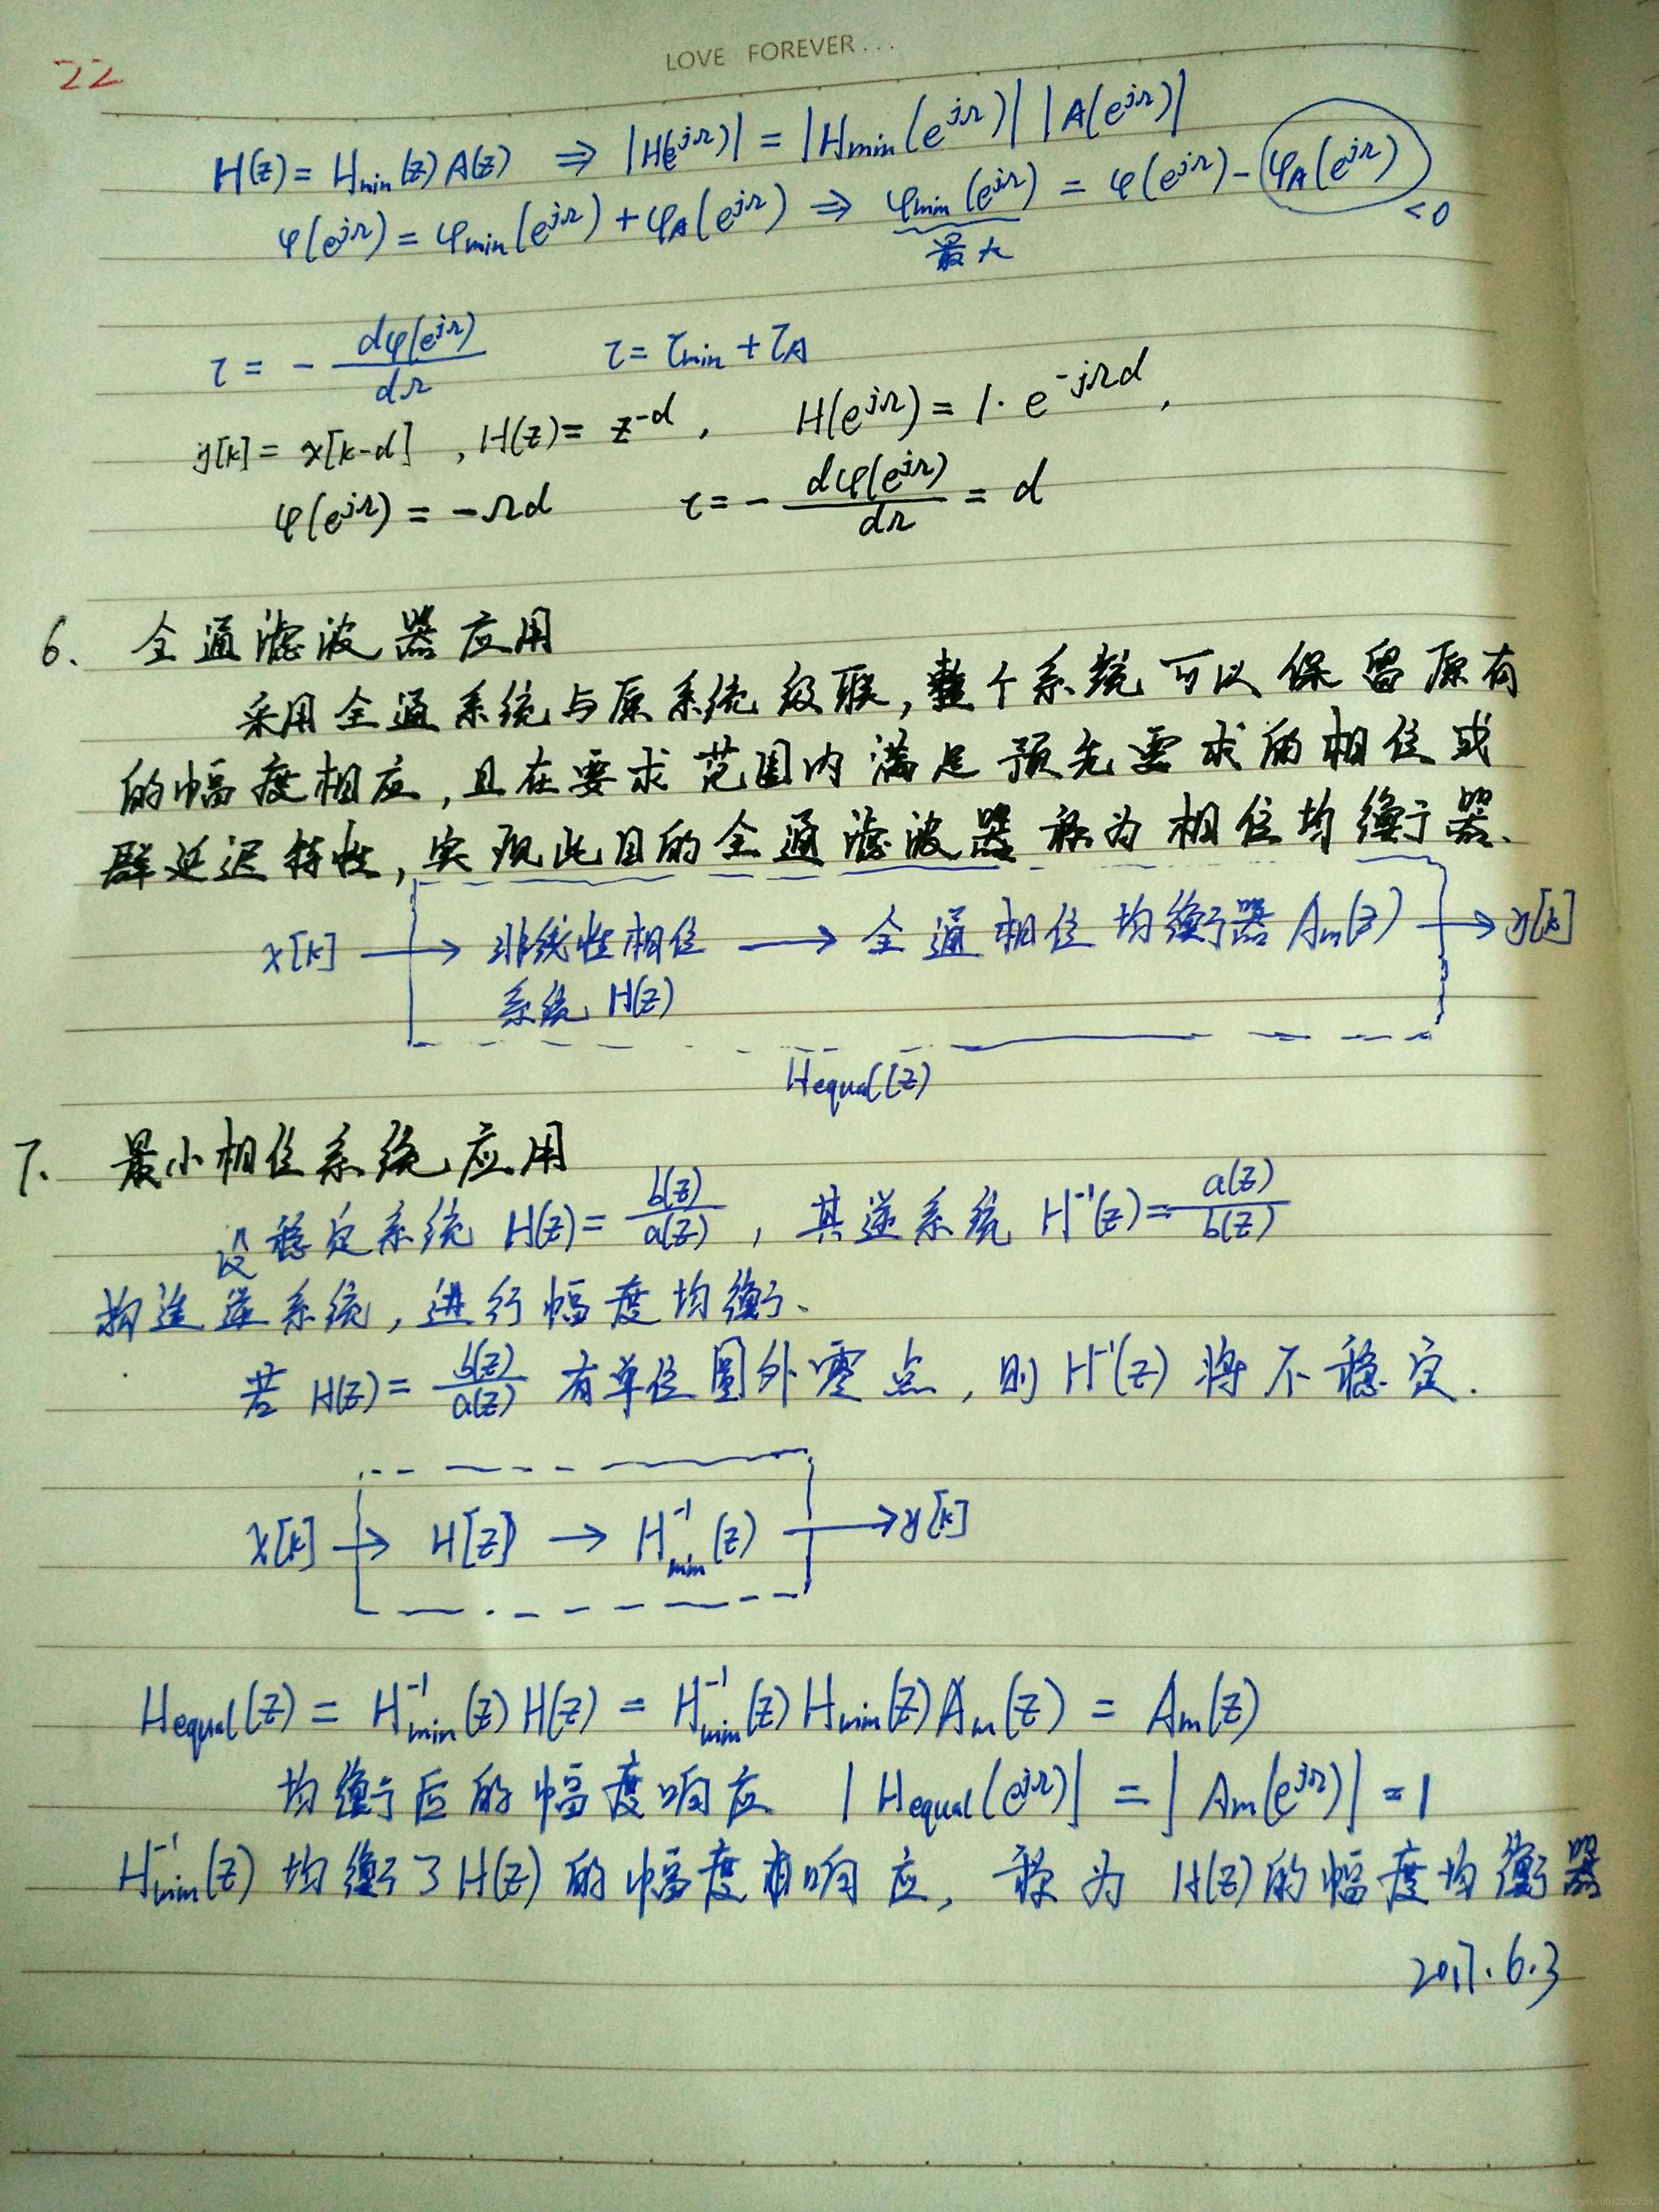 LOVE FOREVER...
22
H(z) = Hmin(z)A(z) ⇒ |H(e^jΩ)| = |Hmin(e^jΩ)| |A(e^jΩ)|
φ(e^jΩ) = φmin(e^jΩ) + φA(e^jΩ) ⇒ φmin(e^jΩ) = φ(e^jΩ) - φA(e^jΩ)
最大
<0
τ = - dφ(e^jΩ)/dΩ τ = τmin + τA
y[k] = x[k-d] , H(z) = z^-d , H(e^jΩ) = 1· e^-jΩd ,
φ(e^jΩ) = -Ωd τ = - dφ(e^jΩ)/dΩ = d
6、全通滤波器应用
采用全通系统与原系统级联,整个系统可以保留原有
的幅度相应,且在要求范围内满足预先要求的相位或
群延迟特性,实现此目的全通滤波器称为相位均衡器、
x[k] → 非线性相位 → 全通相位均衡器 Am(z) → y[k]
系统 H(z)
Hequal(z)
7、最小相位系统应用
设稳定系统 H(z) = b(z)/a(z) , 其逆系统 H^-1(z) = a(z)/b(z)
构造逆系统,进行幅度均衡、
若 H(z) = b(z)/a(z) 有单位圆外零点,则 H^-1(z) 将不稳定.
x[k] → H[z] → H^-1min(z) → y[k]
Hequal(z) = H^-1min(z)H(z) = H^-1min(z)Hmin(z)Am(z) = Am(z)
均衡后的幅度响应 |Hequal(e^jΩ)| = |Am(e^jΩ)| = 1
H^-1min(z) 均衡了H(z)的幅度响应, 称为 H(z)的幅度均衡器
2017.6.3